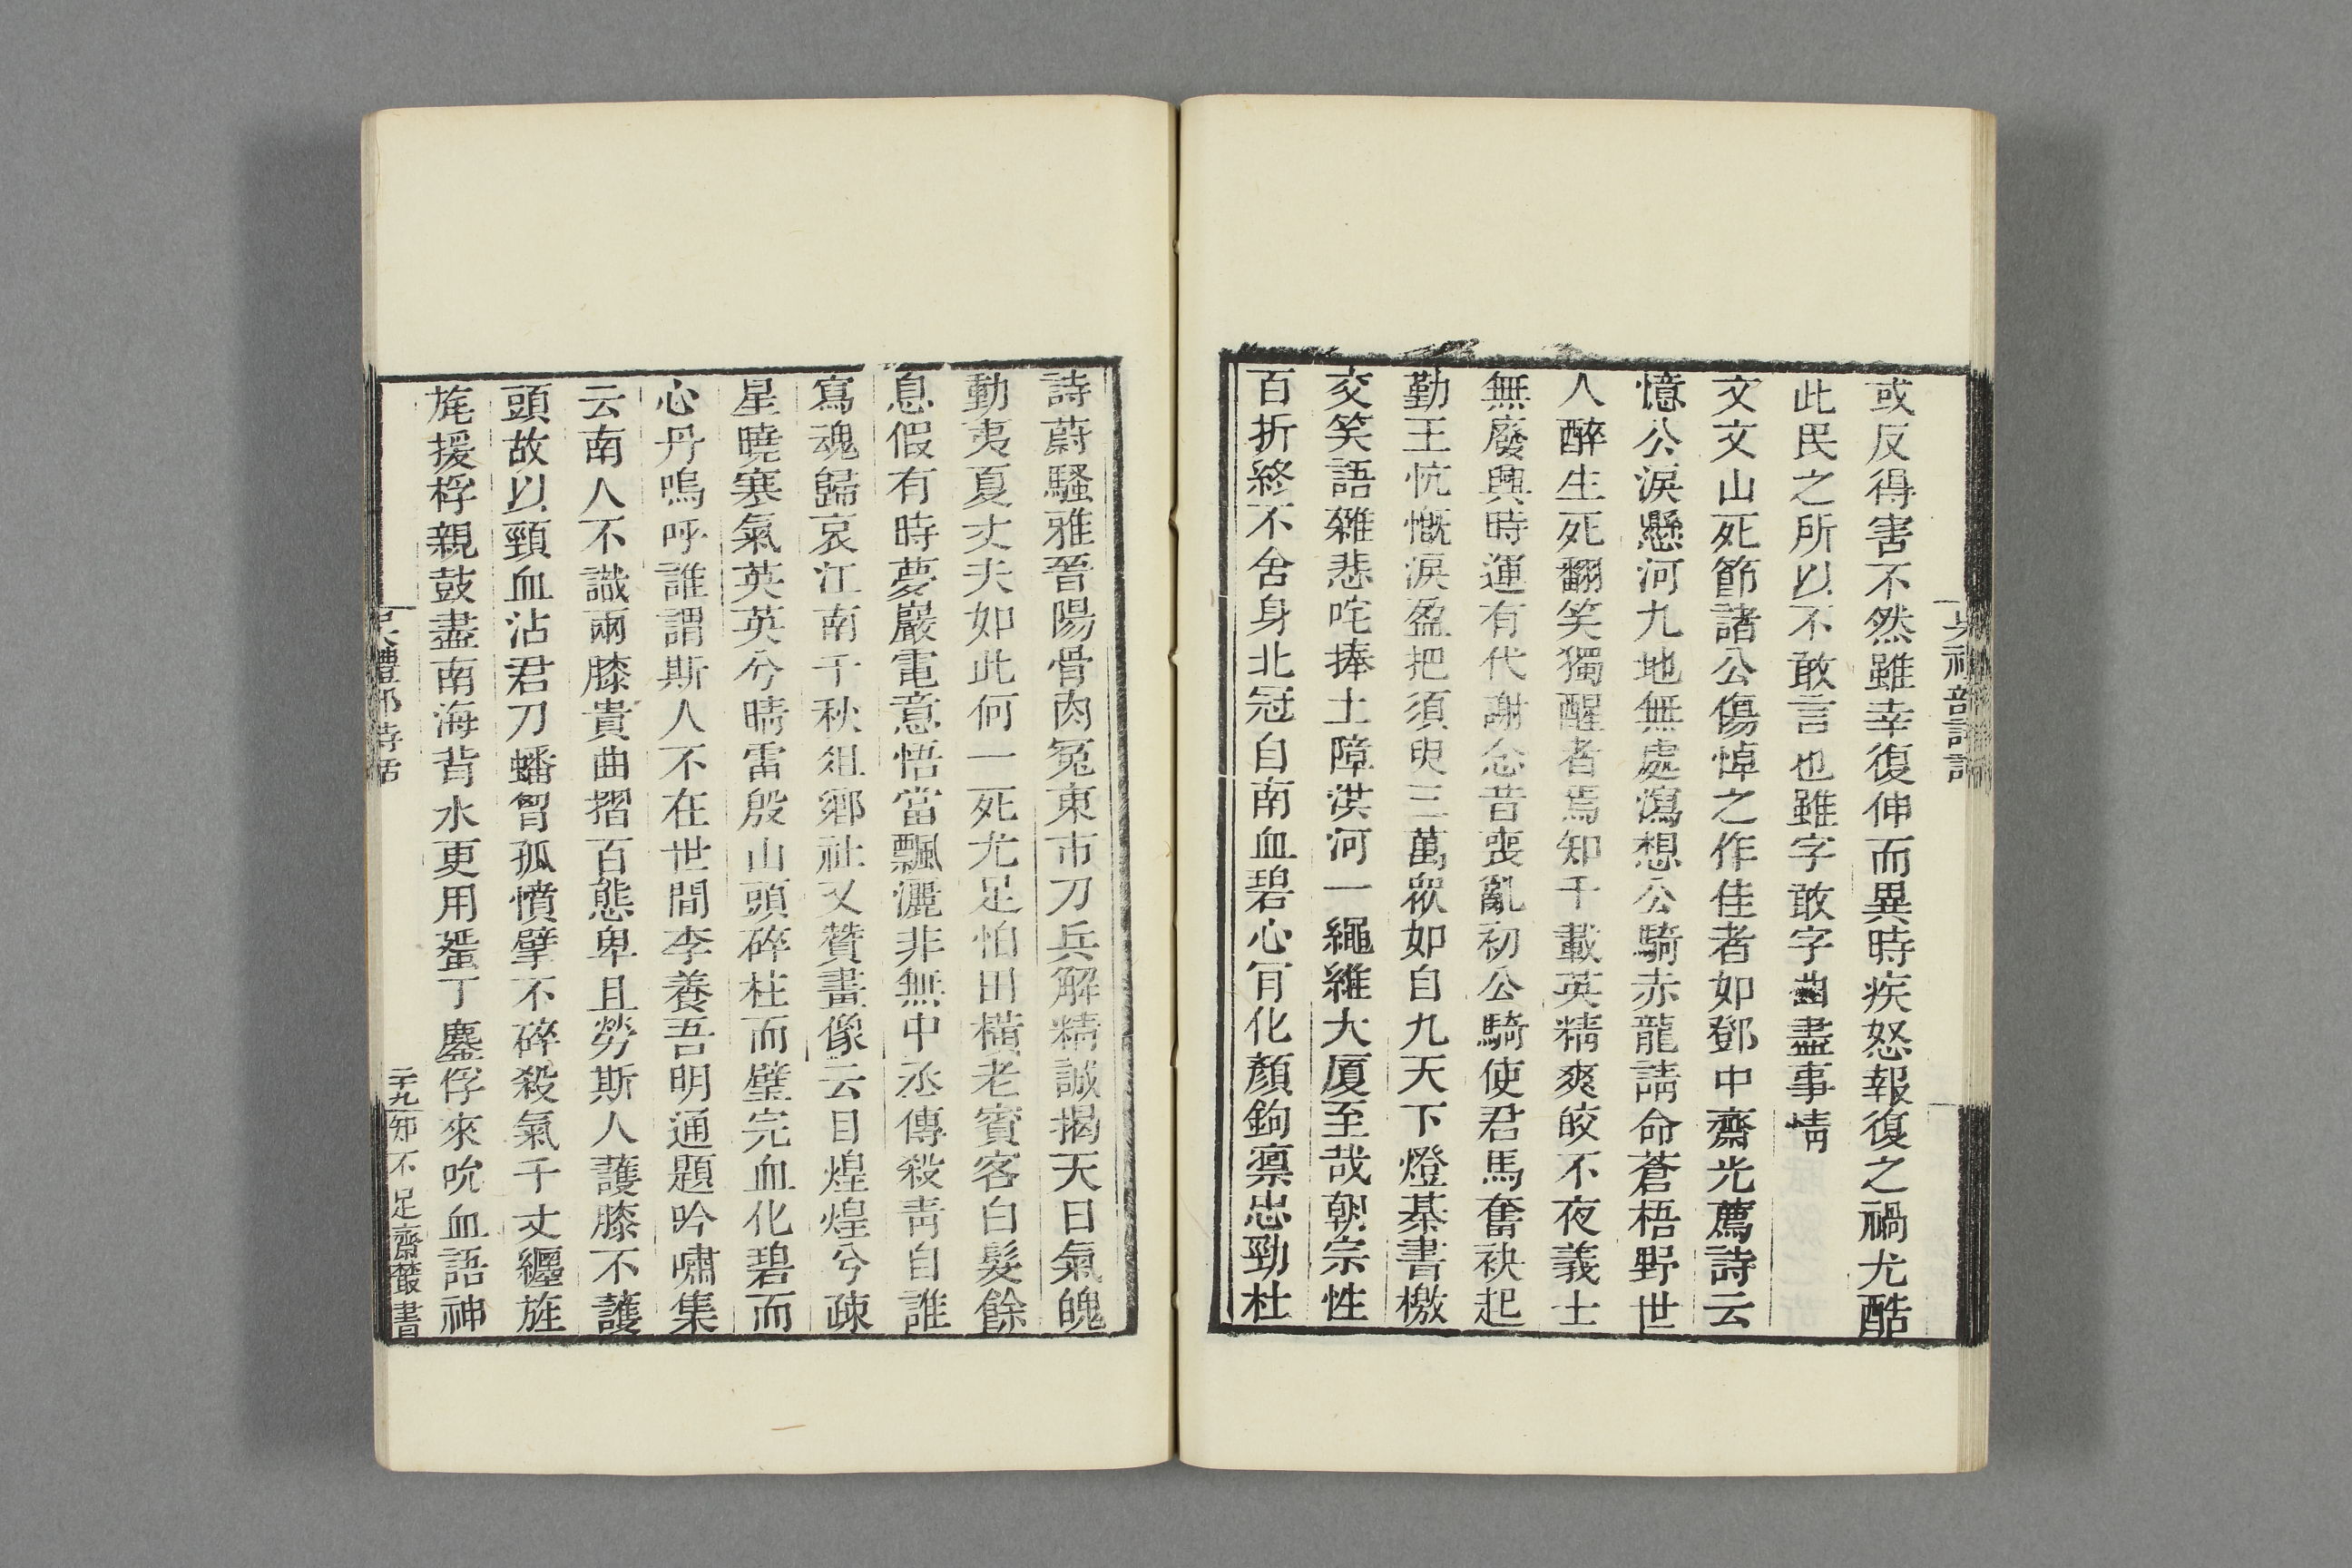 或反得害不然雖幸復伸而異時疾怒報復之禍尤酷
此民之所以不敢言也雖字敢字曲盡事情
文文山死節諸公傷悼之作佳者如鄧中齋光薦詩云
憶公淚懸河九地無處瀉想公騎赤龍請命蒼梧野世
人醉生死翻笑獨醒者焉知千載英精爽皎不夜義士
無廢興時運有代謝念昔喪亂初公騎使君馬奮袂起
勤王忼慨淚盈把須臾三萬眾如自九天下燈棊書檄
交笑語雜悲咤捧土障洪河一繩維大厦至哉朝宗性
百折終不舍身北冠自南血碧心肎化顏鉤凛忠勁杜
詩蔚騷雅晉陽骨肉冤東市刀兵解精誠揭天日氣魄
動夷夏丈夫如此何一死尤足怕田橫老賓客白髮餘
息假有時夢巖電意悟當飄灑非無中丞傳殺青自誰
寫魂歸哀江南千秋俎鄉社又贊畫像云目煌煌兮疎
星曉寒氣英英兮晴雷殷山頭碎柱而璧完血化碧而
心丹嗚呼誰謂斯人不在世間李養吾明通題吟嘯集
云南人不識兩膝貴曲摺百態卑且勞斯人䕶膝不䕶
頭故以頸血沾君刀蟠胷孤憤擘不碎殺氣千丈纒旌
旄援桴親鼓盡南海背水更用蜑丁鏖俘來吮血語神
吳禮部詩話
二十九
知不足齋叢書